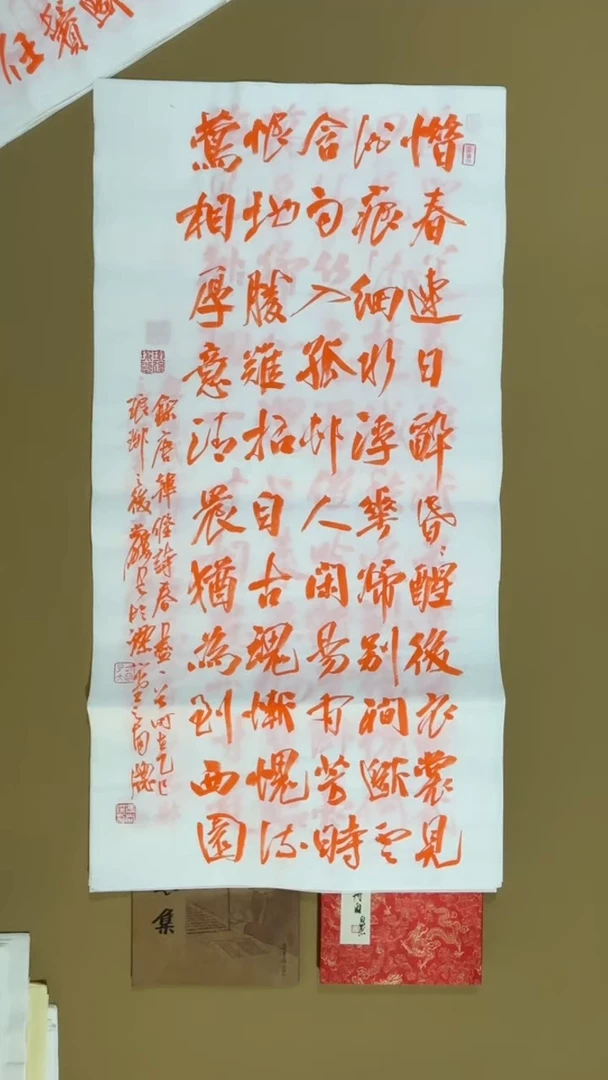 惜春連日醉昏〻醒後衣裳見
酒痕細水浮華歸別澗斷雲
含雨入孤村人閑易有芳時
恨地勝難招自古魂慚愧流
鶯相厚意清晨猶為到西園
錄唐韓偓詩春盡一首時在乙巳
瑯琊之後 之南牕
任鬢
集